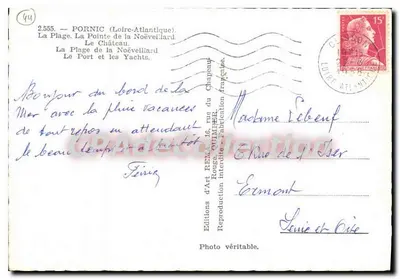 44
2.555. — PORNIC (Loire-Atlantique).
La Plage. La Pointe de la Noëveillard
Le Château.
La Plage de la Noëveillard
Le Port et les Yachts.
Bonjour du bord de la
Mer avec la pluie vacances
de tout repos en attendant
le beau temps à bientôt
Editions d'Art 16, rue du Chapeau-Rouge,
Reproduction interdite - Fabrication française.
15F
LOIRE ATLANTIQUE
Madame Lebeuf
Rue de l'Yser
Ermont
Seine et Oise
Photo véritable.